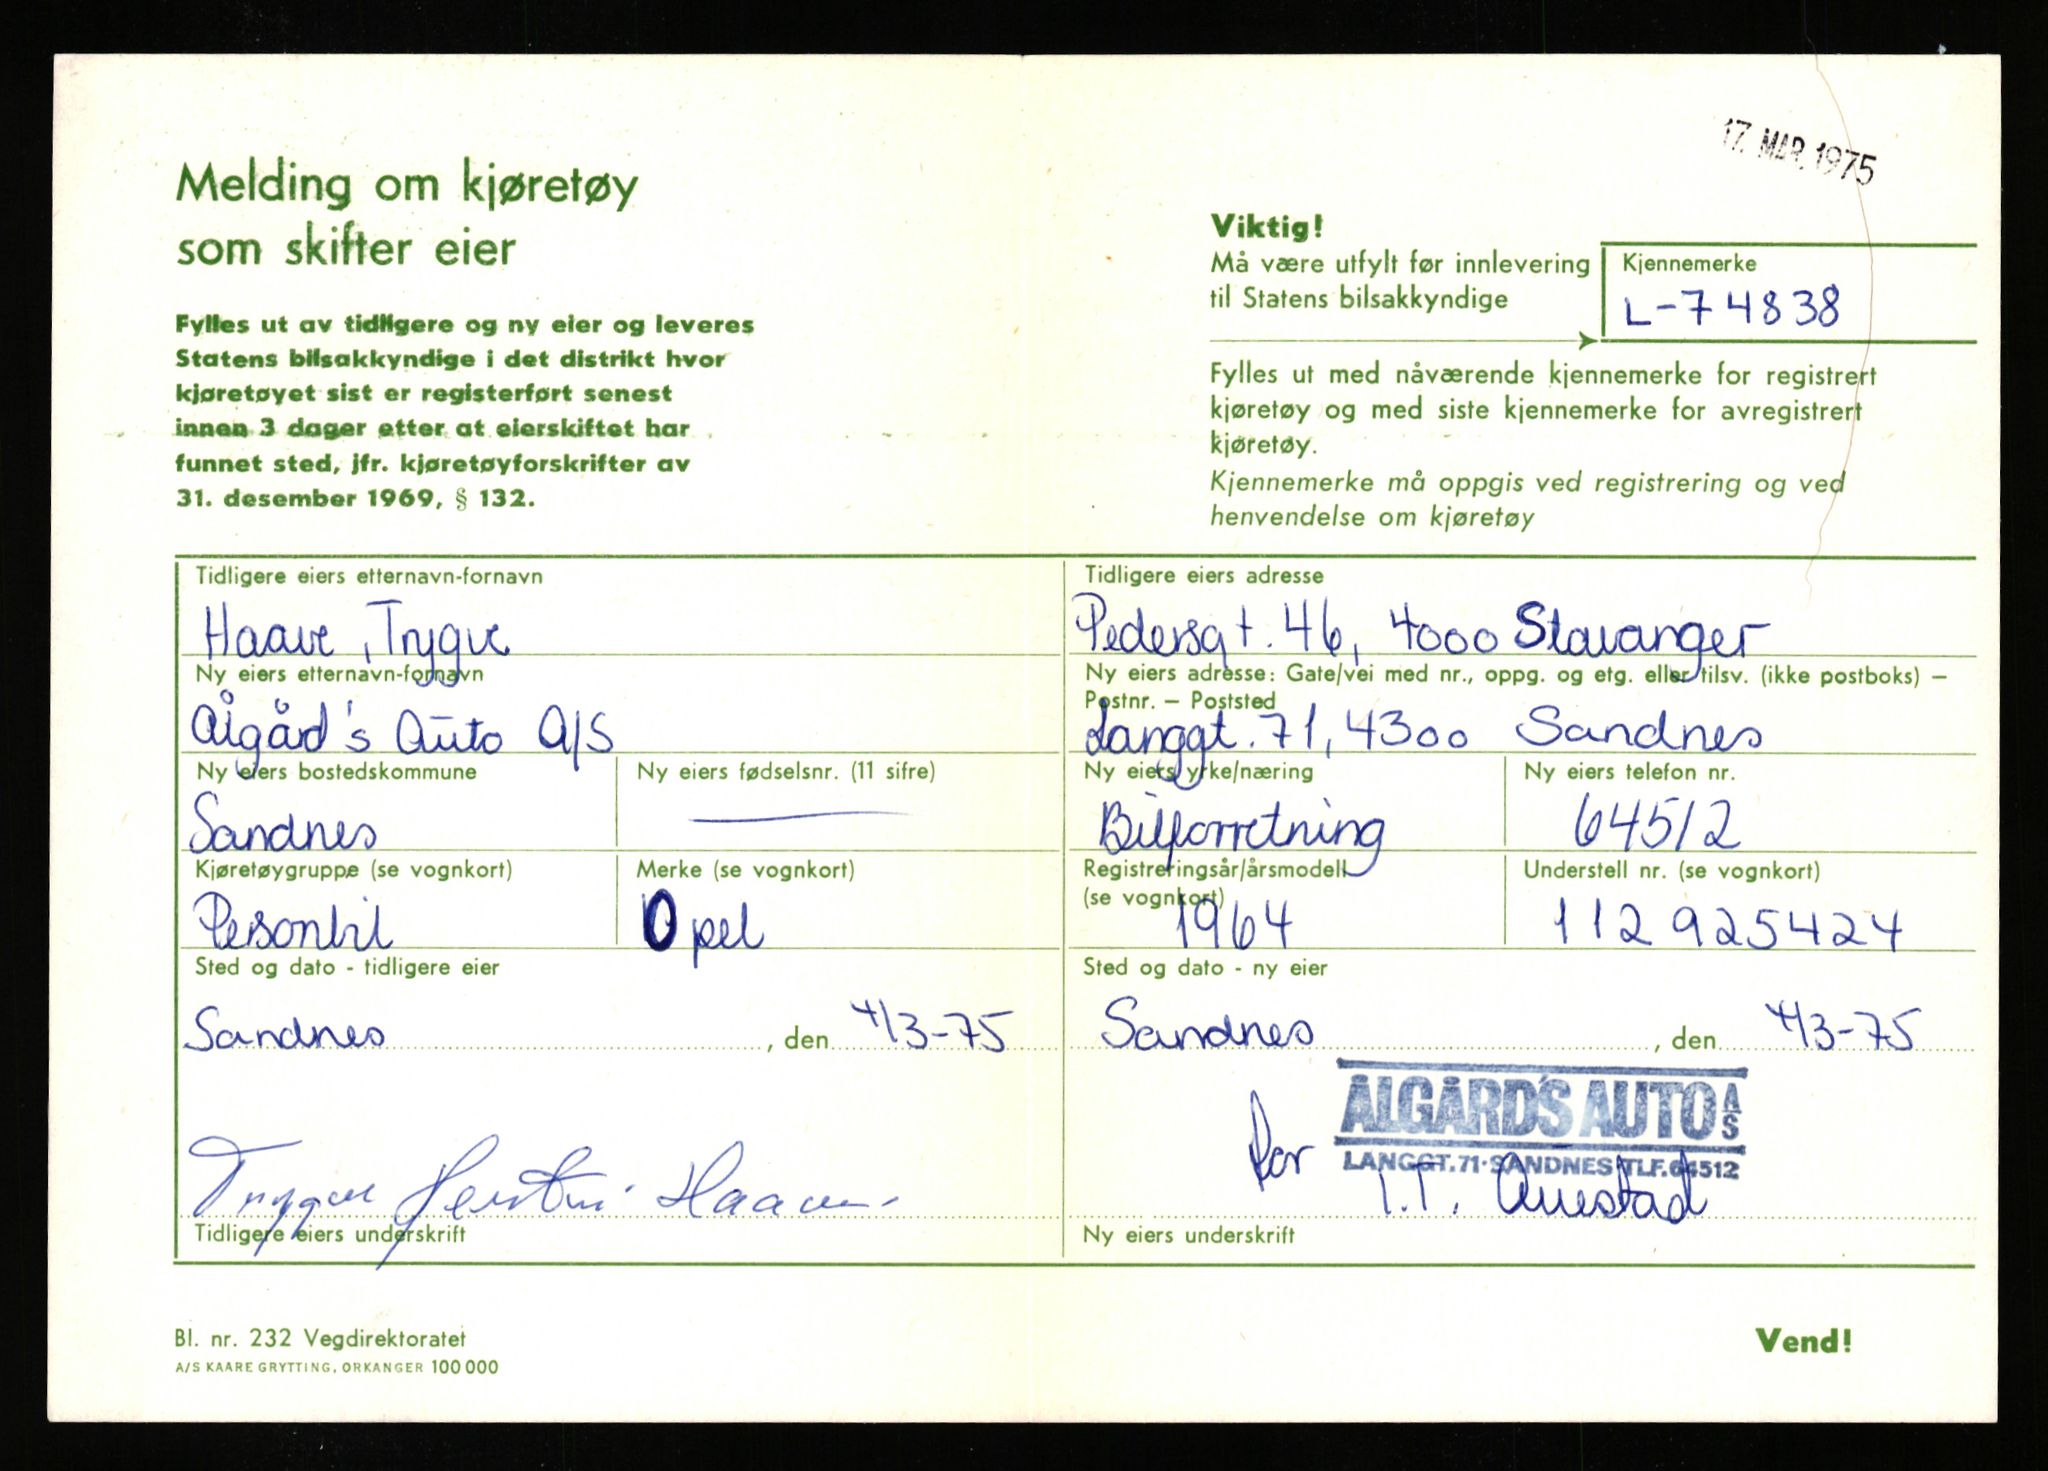 17. MAR. 1975
Melding om kjøretøy
som skifter eier
Fylles ut av tidligere og ny eier og leveres
Statens bilsakkyndige i det distrikt hvor
kjøretøyet sist er registerført senest
innen 3 dager etter at eierskiftet har
funnet sted, jfr. kjøretøyforskrifter av
31. desember 1969, § 132.
Viktig!
Må være utfylt før innlevering
til Statens bilsakkyndige
Kjennemerke
L-74838
Fylles ut med nåværende kjennemerke for registrert
kjøretøy og med siste kjennemerke for avregistrert
kjøretøy.
Kjennemerke må oppgis ved registrering og ved
henvendelse om kjøretøy
Tidligere eiers etternavn-fornavn
Haave, Trygve
Tidligere eiers adresse
Pedersgt. 46, 4000 Stavanger
Ny eiers etternavn-fornavn
Ålgård's Auto A/S
Ny eiers adresse: Gate/vei med nr., oppg. og etg. eller tilsv. (ikke postboks) —
Postnr. — Poststed
Langgt. 71, 4300 Sandnes
Ny eiers bostedskommune
Sandnes
Ny eiers fødselsnr. (11 sifre)
Ny eiers yrke/næring
Bilforretning
Ny eiers telefon nr.
64512
Kjøretøygruppe (se vognkort)
Personbil
Merke (se vognkort)
Opel
Registreringsår/årsmodell
(se vognkort)
1964
Understell nr. (se vognkort)
112 925424
Sted og dato - tidligere eier
Sandnes, den 4/3-75
Sted og dato - ny eier
Sandnes, den 4/3-75
ÅLGÅRD'S AUTO A/S
LANGGT. 71 · SANDNES TLF. 64512
for
T.T. Auestad
Trygve Haave
Tidligere eiers underskrift
Ny eiers underskrift
Bl. nr. 232 Vegdirektoratet
A/S KAARE GRYTTING, ORKANGER 100 000
Vend!